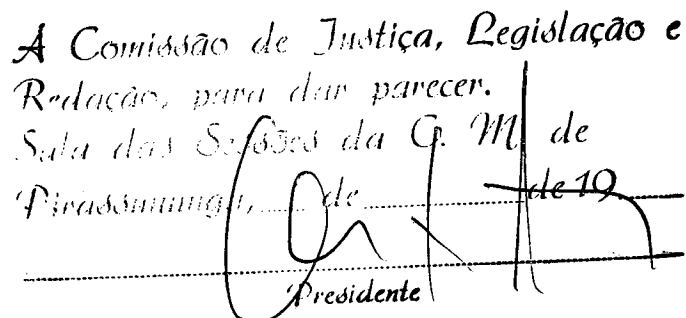 Á Comissão de Justiça, Legislação e
Redação, para dar parecer.
Sala das Sessões da C. M. de
Pirassununga, ...... de ...................... de 19......
Presidente